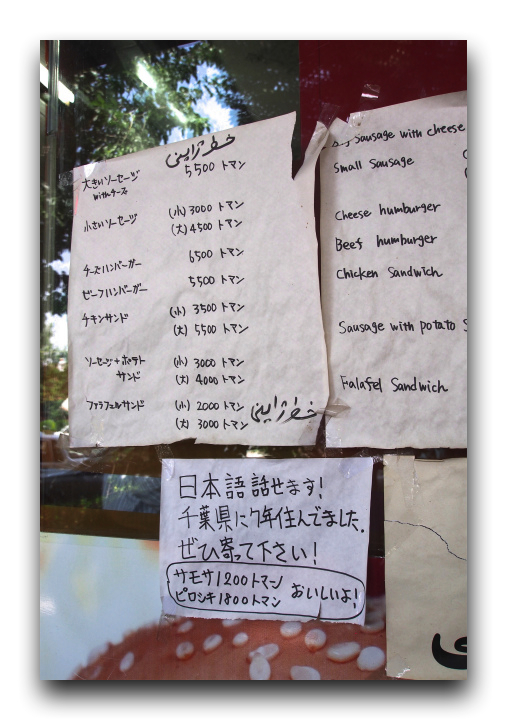 خط ژاپنی
大きいソーセージ 5500 トマン
withチーズ
小さいソーセージ (小) 3000 トマン
(大) 4500 トマン
チーズハンバーガー 6500 トマン
ビーフハンバーガー 5500 トマン
チキンサンド (小) 3500 トマン
(大) 5500 トマン
ソーセージ+ポテト (小) 3000 トマン
サンド (大) 4000 トマン
ファラフェルサンド (小) 2000 トマン
(大) 3000 トマン
خط ژاپنی
Sausage with cheese
Small Sausage
Cheese humburger
Beef humburger
Chicken Sandwich
Sausage with potato S
Falafel Sandwich
日本語話せます!
千葉県に7年住んでました.
ぜひ寄って下さい!
サモサ1200トマン
ピロシキ1800トマン おいしいよ!